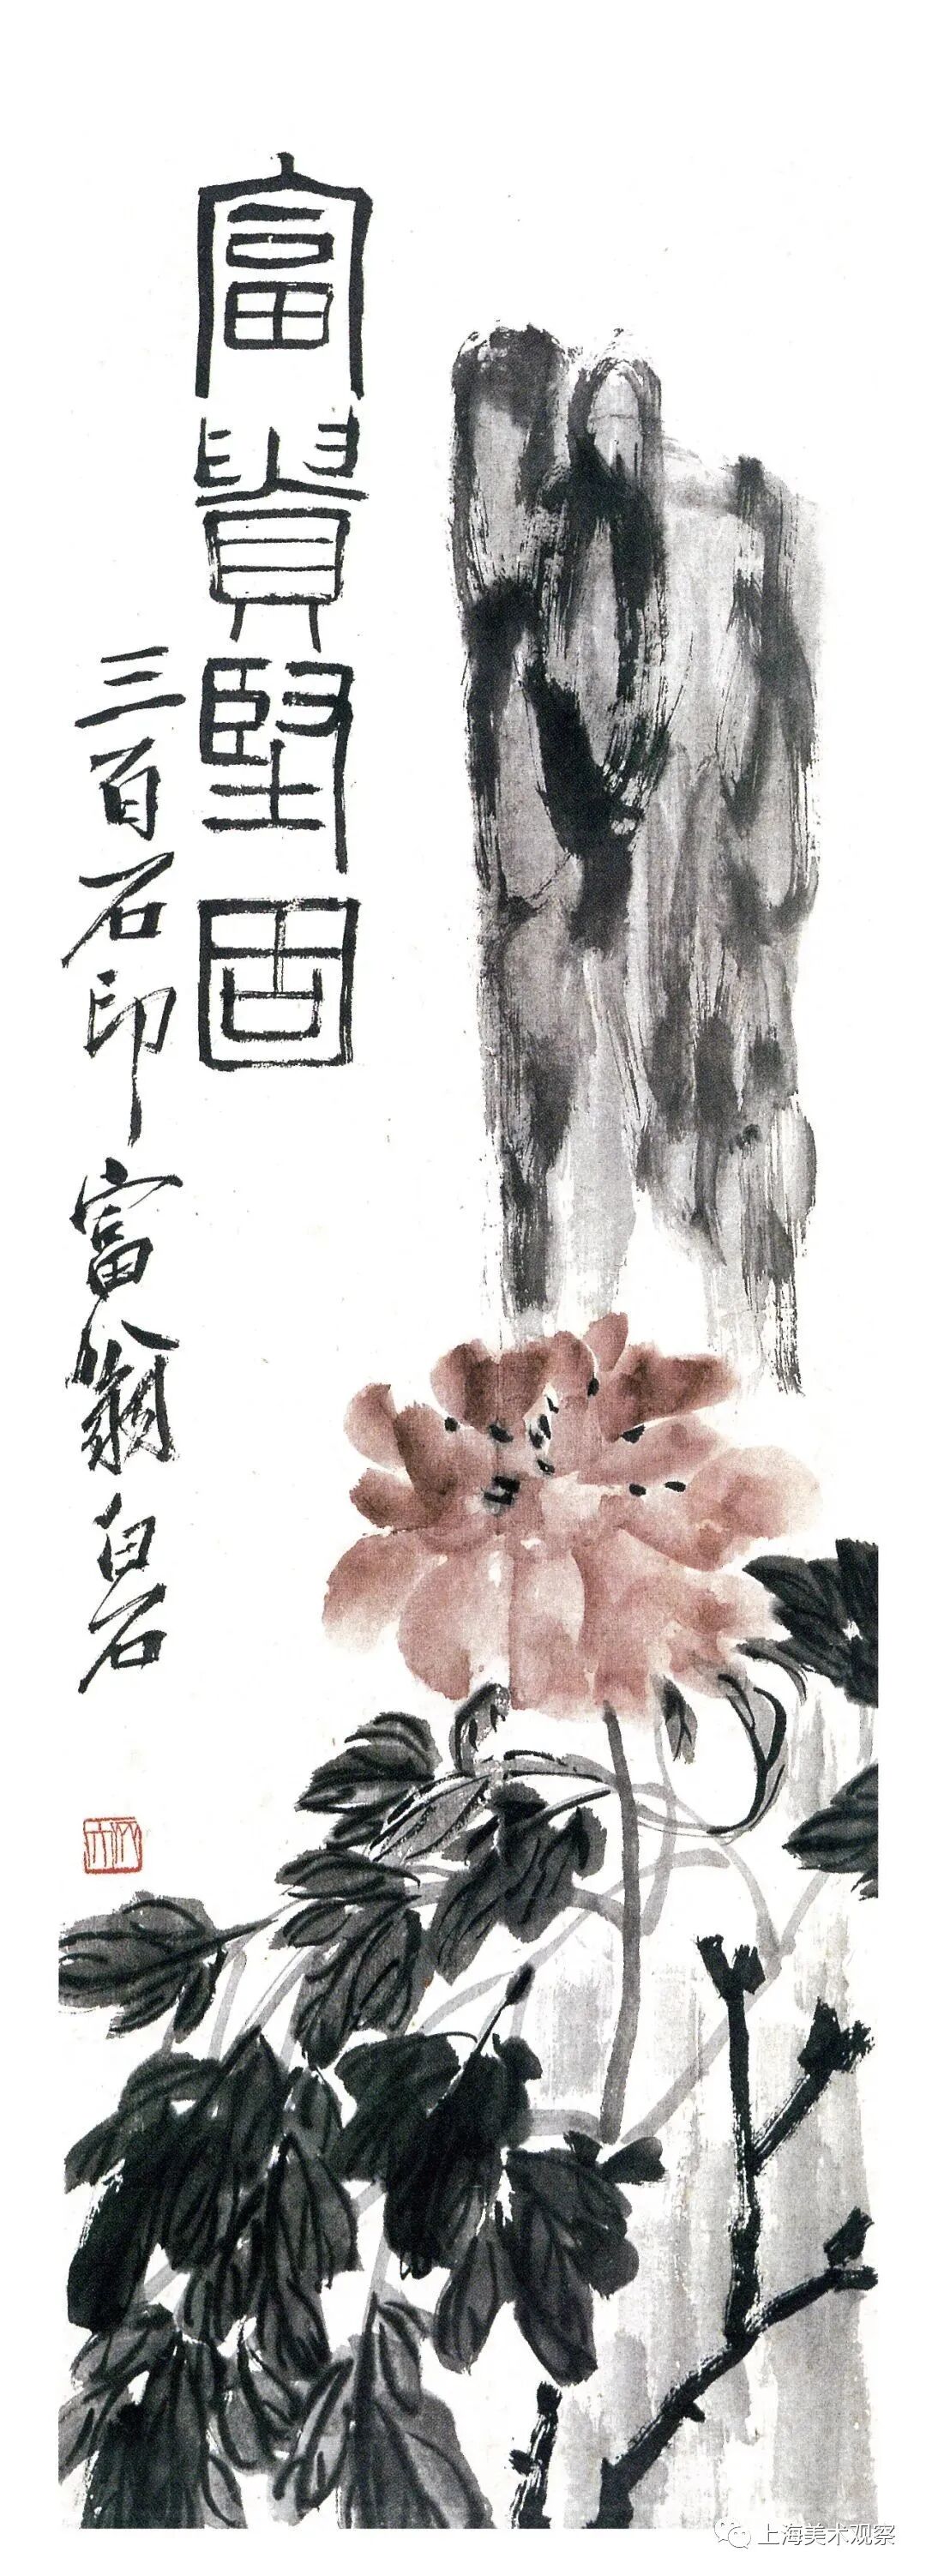 富貴堅固
三百石印富翁白石
上海美术观察